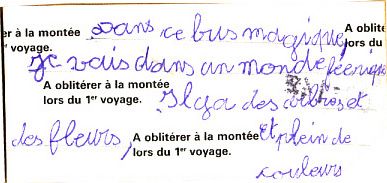 er à la montée Dans ce bus magique, A oblité
1er voyage. lors du
Je vais dans un monde féerique
A oblitérer à la montée
lors du 1er voyage. Il y a des arbres et
des fleurs, A oblitérer à la montée et plein de
lors du 1er voyage.
couleurs